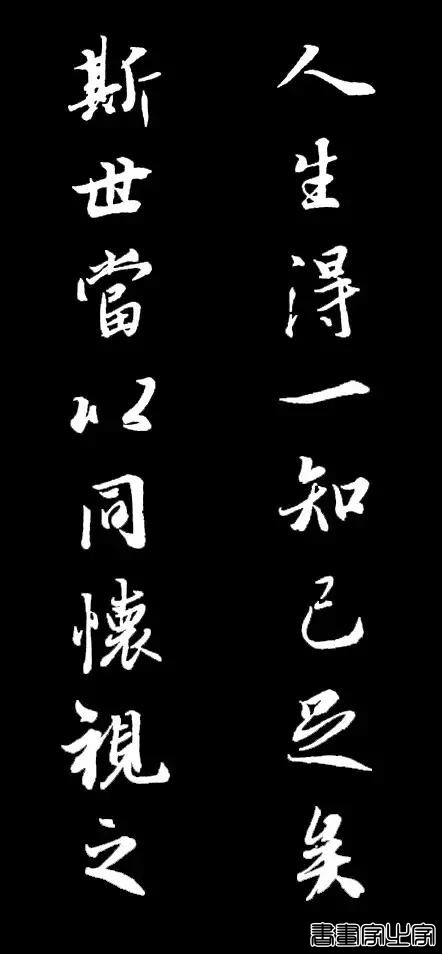 人生得一知己足矣
斯世當以同懷視之
書畫字中字